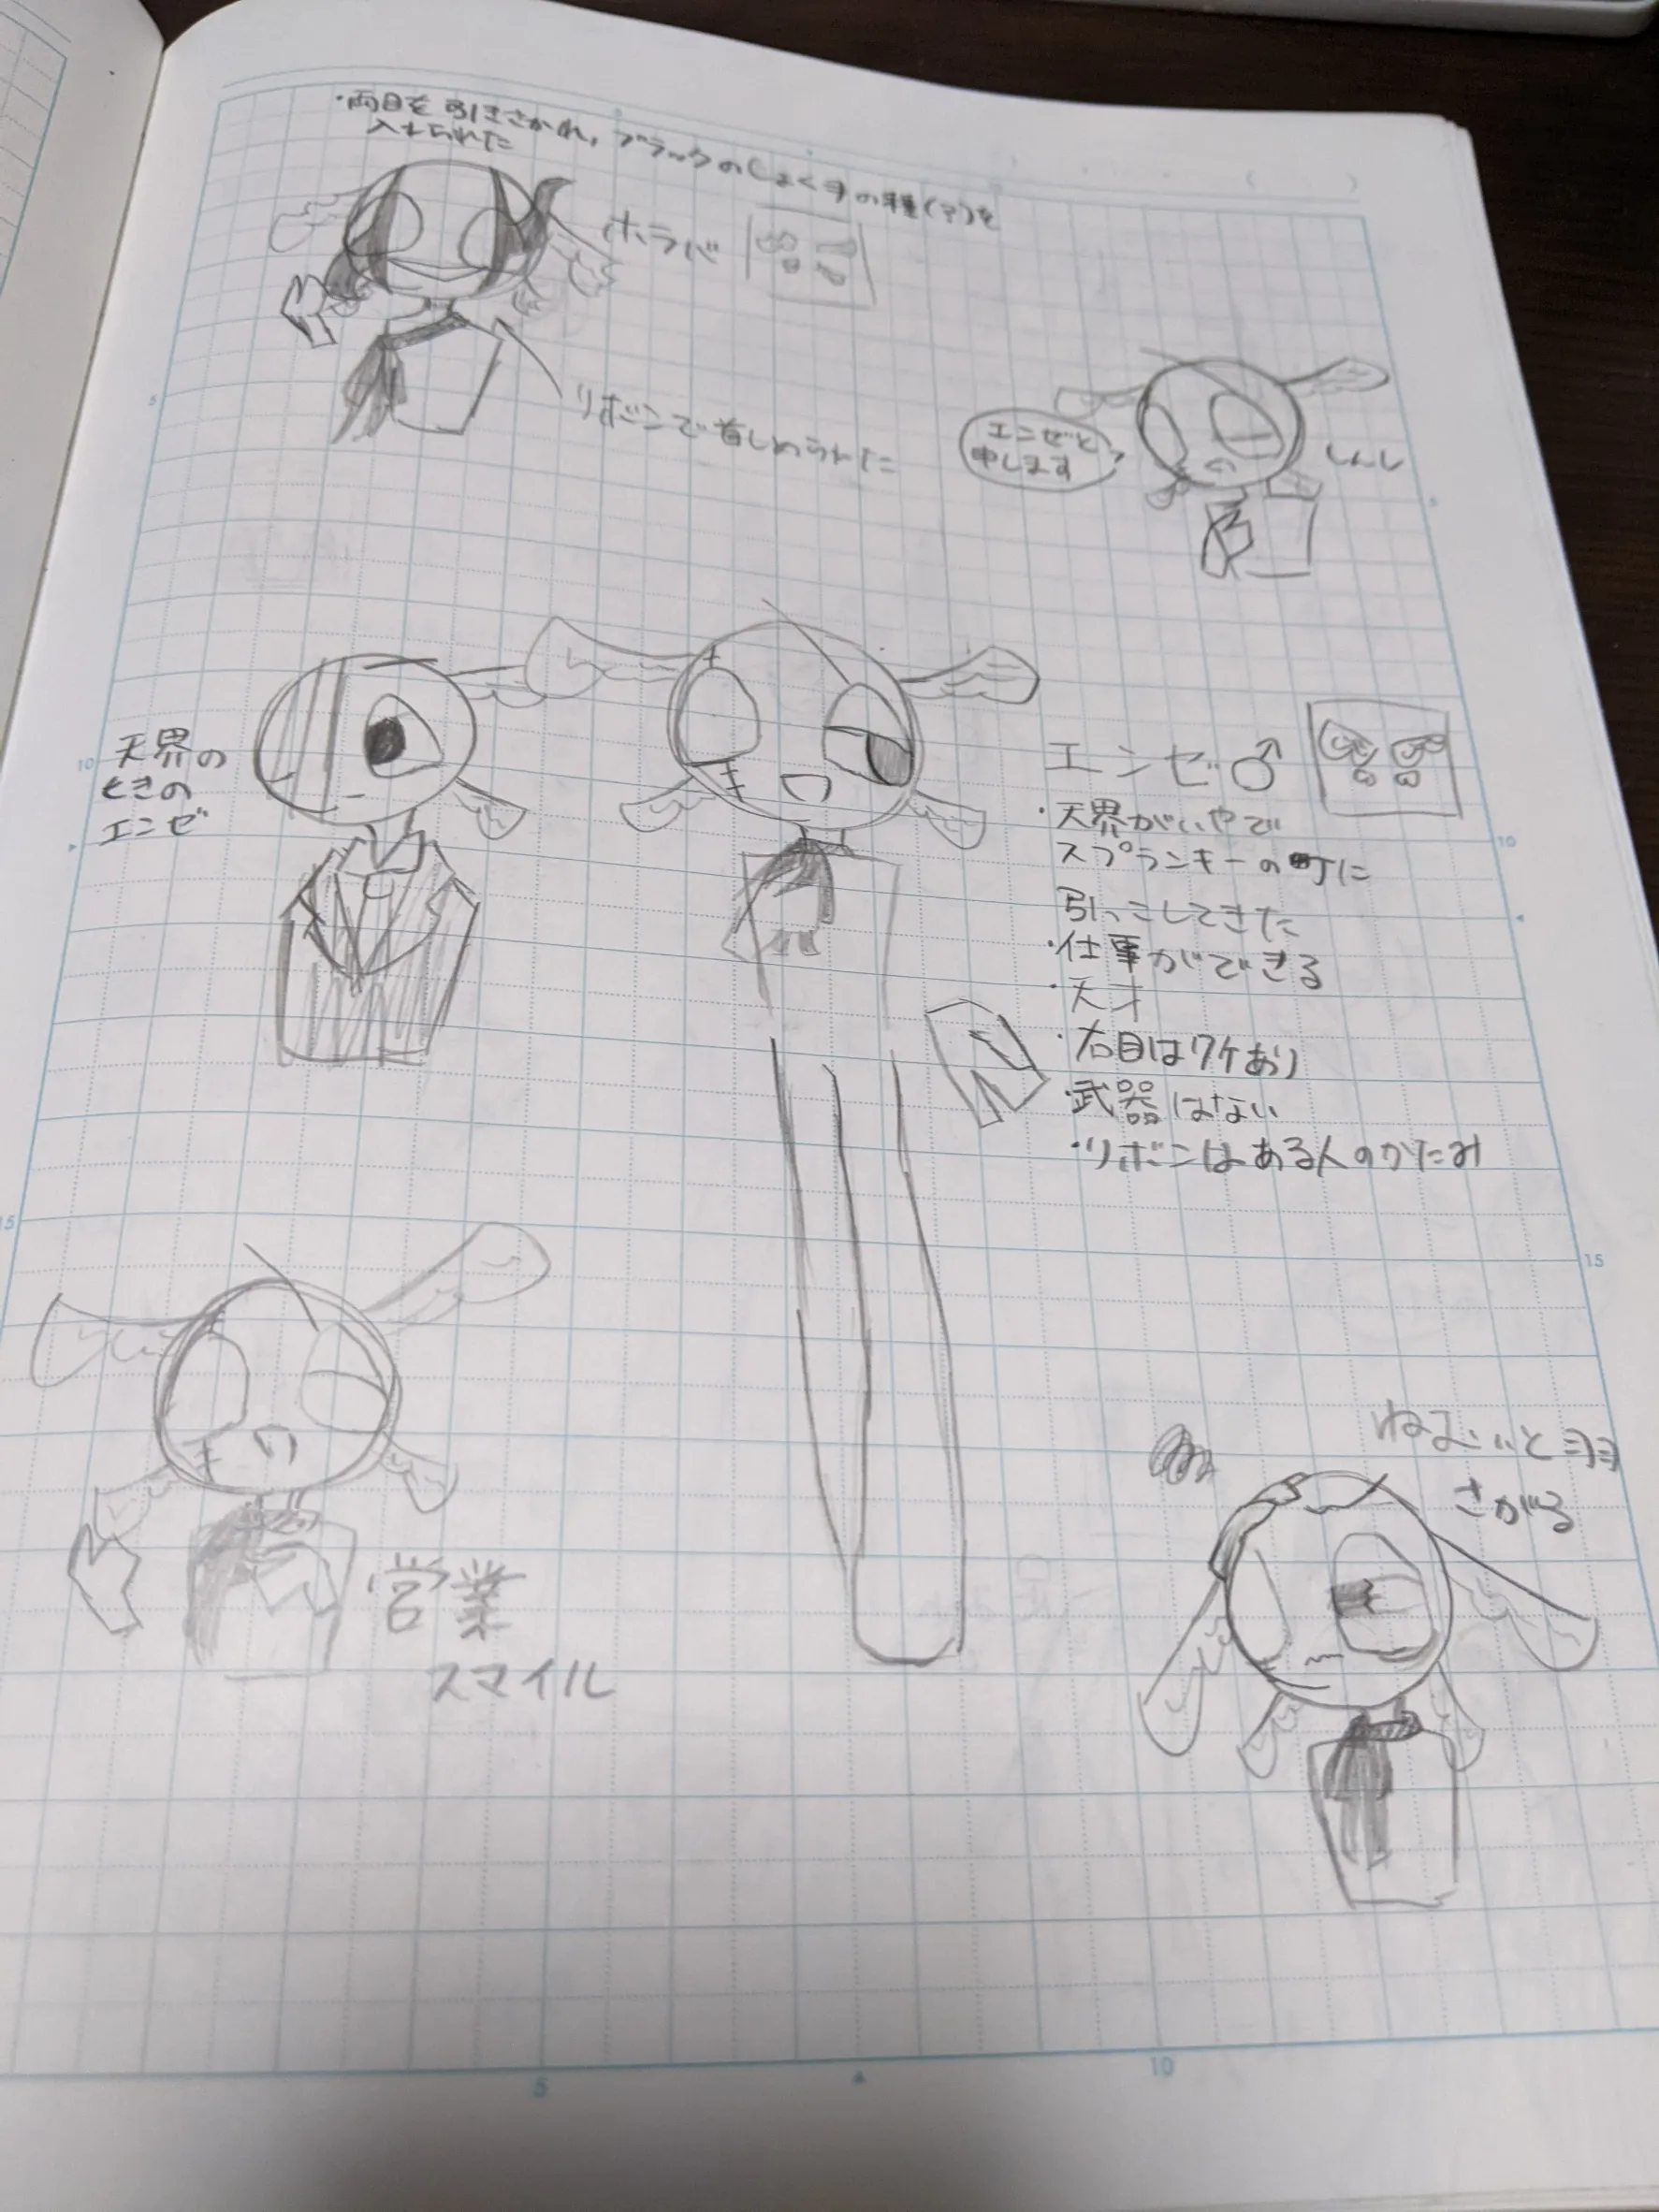 ・両目を引きさかれ、ブラックのしょく手の種(?)を
入れられた
ホラバ
リボンで首しめられた
エンゼと
申します
しんし
天界の
ときの
エンゼ
エンゼ♂
・天界がいやで
スプランキーの町に
引っこしてきた
・仕事ができる
・天才
・右目はワケあり
・武器はない
・リボンはある人のかたみ
営業
スマイル
ねむいと
さがる
5
5
10
10
15
15
5
10